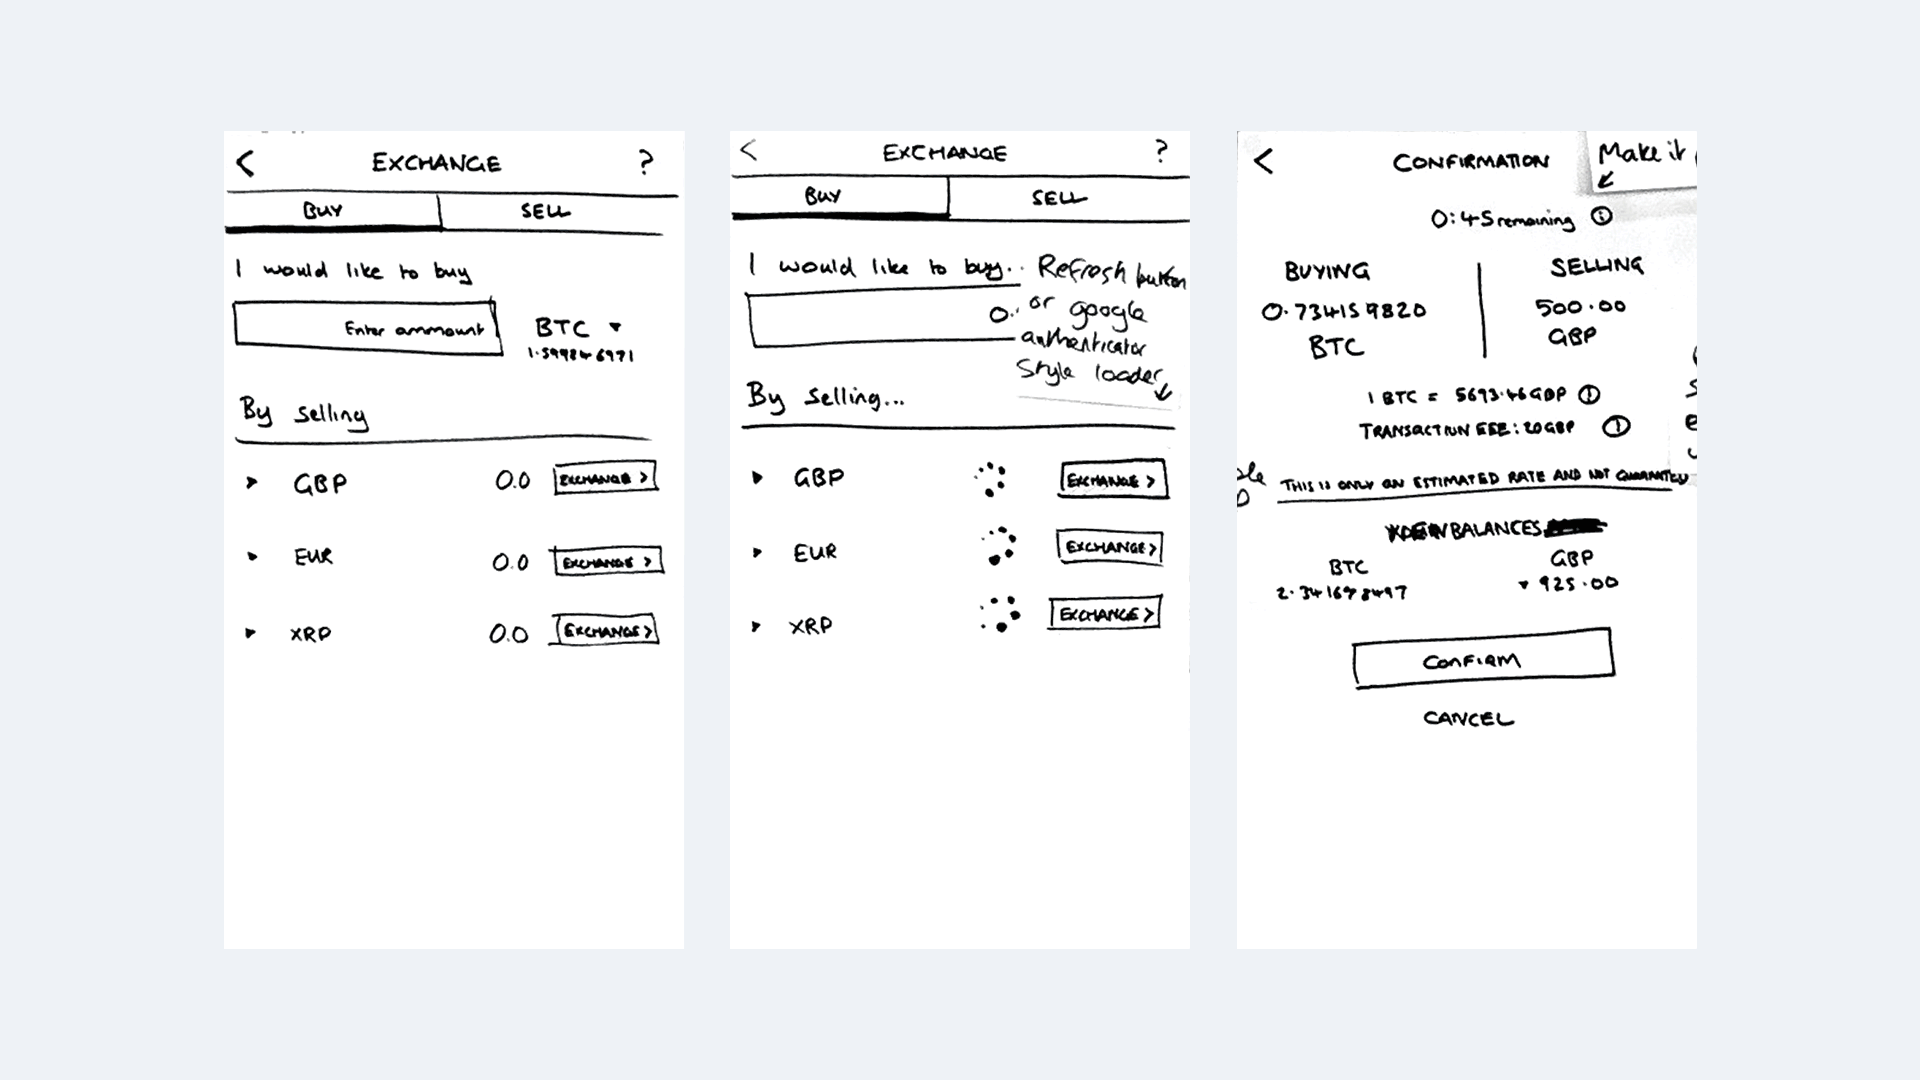 EXCHANGE ?
BUY SELL
I would like to buy
Enter ammount BTC
By selling
GBP 0.0 EXCHANGE >
EUR 0.0 EXCHANGE >
XRP 0.0 EXCHANGE >
EXCHANGE ?
BUY SELL
I would like to buy...
0.
Refresh button
or google
authenticator
Style loader
By selling...
GBP EXCHANGE >
EUR EXCHANGE >
XRP EXCHANGE >
CONFIRMATION
Make it
0:45 remaining i
BUYING SELLING
0.734159820 500.00
BTC GBP
1 BTC = 5693.46 GBP
TRANSACTION FEE: 20 GBP
THIS IS ONLY AN ESTIMATED RATE AND NOT
BALANCES
BTC GBP
925.00
CONFIRM
CANCEL